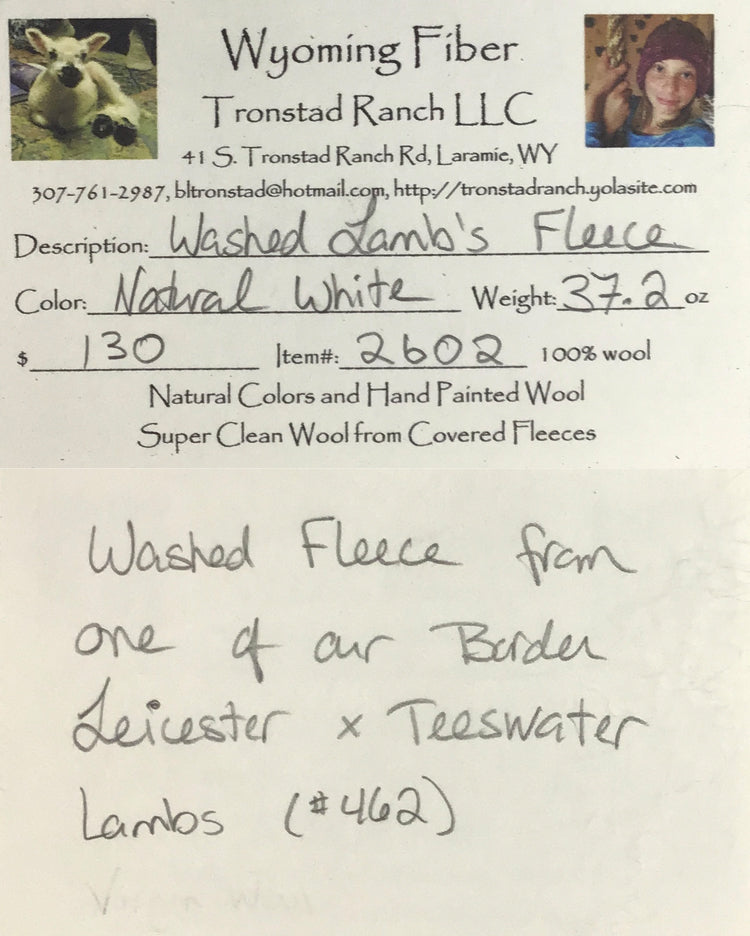 Wyoming Fiber
Tronstad Ranch LLC
41 S. Tronstad Ranch Rd, Laramie, WY
307-761-2987, bltronstad@hotmail.com, http://tronstadranch.yolasite.com
Description: Washed Lamb's Fleece
Color: Natural White Weight: 37.2 oz
$ 130 Item#: 2602 100% wool
Natural Colors and Hand Painted Wool
Super Clean Wool from Covered Fleeces
Washed Fleece from
one of our Border
Leicester x Teeswater
Lambs (#462)